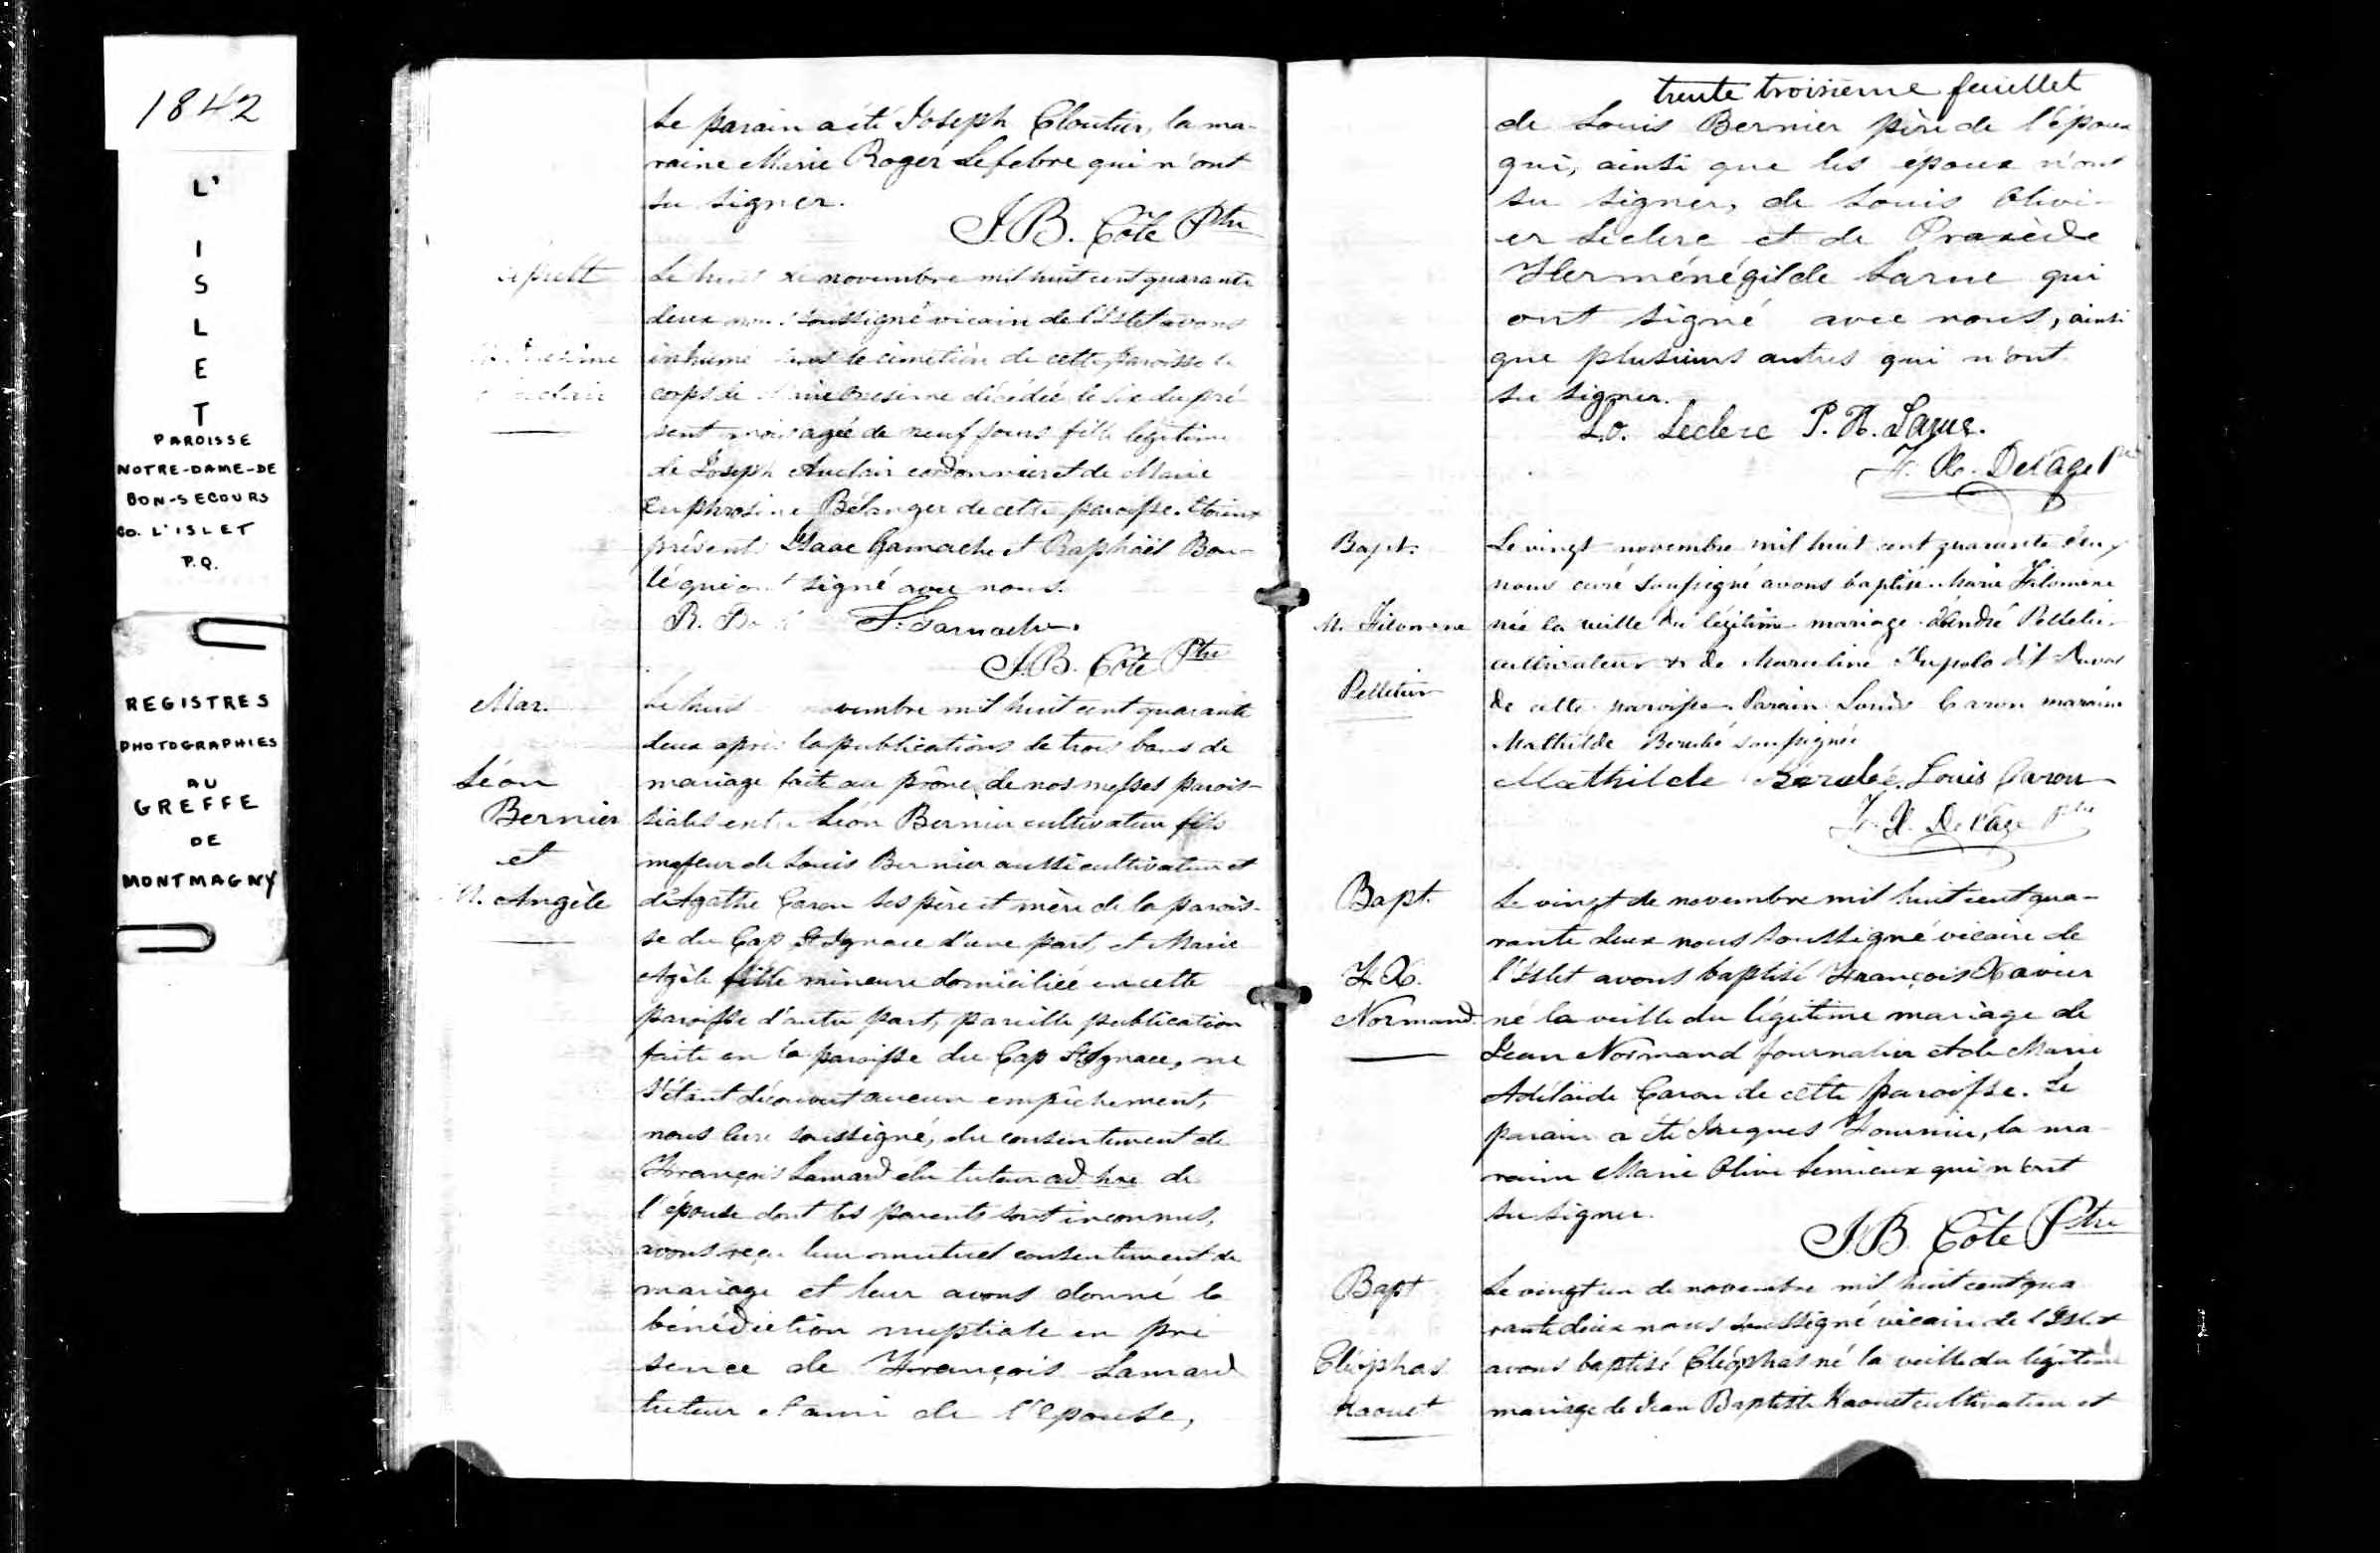 1842
L'
I
S
L
E
T
PAROISSE
NOTRE-DAME-DE
BON-SECOURS
CO. L'ISLET
P.Q.
REGISTRES
PHOTOGRAPHIES
AU
GREFFE
DE
MONTMAGNY
Le parain a été Joseph Cloutier, la ma-
raine Marie Roger Lefebvre qui n'ont
su signer.
J.B. Côté Ptre
Le huit de novembre mil huit cent quarante
deux nous soussigné vicaire de l'Islet avons
inhumé dans le cimetière de cette paroisse le
corps de décédée le six du pré
sent mois agée de neuf jours fille légitime
de Joseph Auclair cordonnier et de Marie
Euphrosine Bélanger de cette paroisse. Etoient
présents Isaac Gamache et Raphaël Bou-
lé qui ont signé avec nous.
R. Bo J. Gamache
J.B. Côté Ptre
Mar.
Léon
Bernier
et
M. Angèle
Le huit novembre mil huit cent quarante
deux après la publications de trois bans de
mariage faite au prône de nos messes parois-
siales entre Léon Bernier cultivateur fils
majeur de Louis Bernier aussi cultivateur et
d'Agathe Caron ses père et mère de la parois-
se du Cap St Ignace d'une part, et Marie
Agèle fille mineure domiciliée en cette
paroisse d'autre part, pareille publication
faite en la paroisse du Cap St Ignace, ne
s'étant découvert aucun empêchement,
nous curé soussigné, du consentement de
François Lamard élu tuteur ad hoc de
l'épouse dont les parents sont inconnus,
avons reçu leur mutuel consentement de
mariage et leur avons donné la
bénédiction nuptiale en pré
sence de François Lamard
tuteur et ami de l'épouse,
trente troisième feuillet
de Louis Bernier père de l'époux
qui, ainsi que les époux n'ont
su signer, de Louis Olivi-
er Leclerc et de Praxède
Herménégilde Larue qui
ont signé avec nous, ainsi
que plusieurs autres qui n'ont
su signer.
L.O. Leclerc P.H. Larue.
F.X. Delâge Ptre
Bapt.
M. Filomene
Pelletier
Le vingt novembre mil huit cent quarante deux
nous curé soussigné avons baptisé Marie Filomène
née la veille du légitime mariage d'André Pelletier
cultivateur & de Marceline dit
de cette paroisse. Parain Louis Caron maraine
Mathilde soussignés
Mathilde Louis Caron
F.X. Delâge ptre
Bapt.
F.X.
Normand
Le vingt de novembre mil huit cent qua-
rante deux nous soussigné vicaire de
l'Islet avons baptisé François Xavier
né la veille du légitime mariage de
Jean Normand journalier et de Marie
Adélaïde Caron de cette paroisse. Le
parain a été Jacques Fournier, la ma-
raine Marie Olive Lemieux qui n'ont
su signer.
J.B. Côté Ptre
Bapt
Cléophas
Kaouet
Le vingt un de novembre mil huit cent qua
rante deux nous soussigné vicaire de l'Islet
avons baptisé Cléophas né la veille du légitime
mariage de Jean Baptiste Kaouet cultivateur et